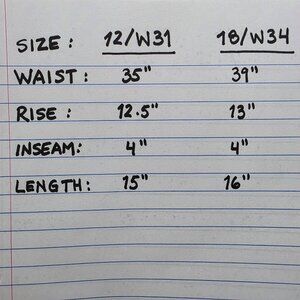 SIZE: 12/W31 18/W34
WAIST: 35" 39"
RISE: 12.5" 13"
INSEAM: 4" 4"
LENGTH: 15" 16"